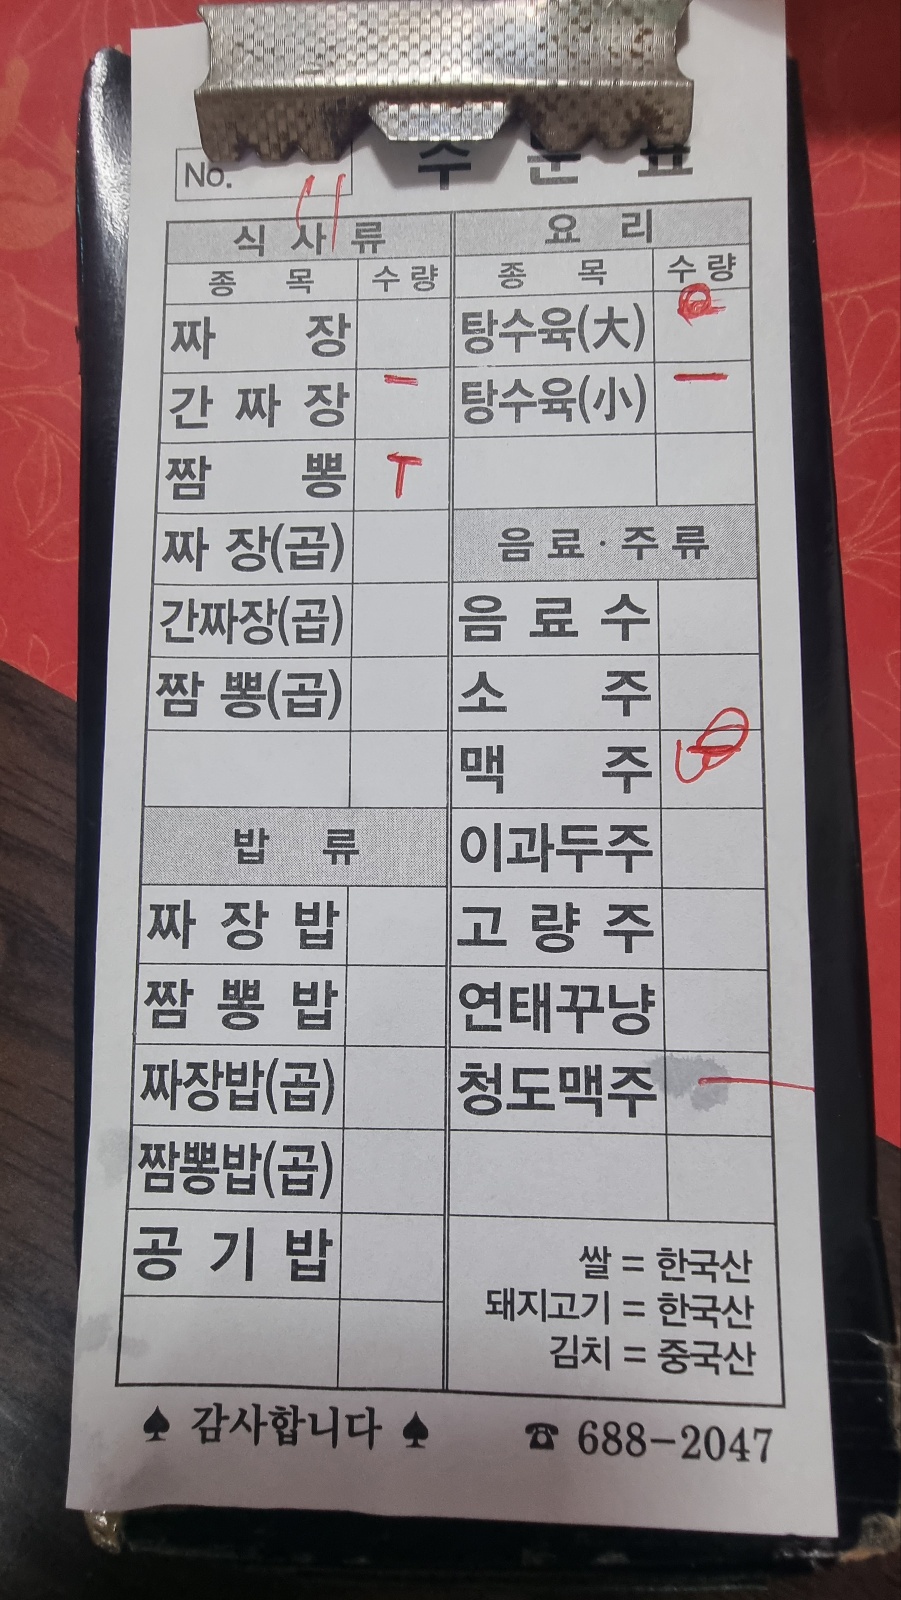 주 문 표
No.
식 사 류
종 목 수 량
짜 장
간 짜 장 一
짬 뽕 T
짜 장(곱)
간짜장(곱)
짬 뽕(곱)
밥 류
짜 장 밥
짬 뽕 밥
짜장밥(곱)
짬뽕밥(곱)
공 기 밥
요 리
종 목 수 량
탕수육(大)
탕수육(小) 一
음 료 · 주 류
음 료 수
소 주
맥 주
이과두주
고 량 주
연태꾸냥
청도맥주 一
쌀 = 한국산
돼지고기 = 한국산
김치 = 중국산
♠ 감사합니다 ♠ ☎ 688-2047